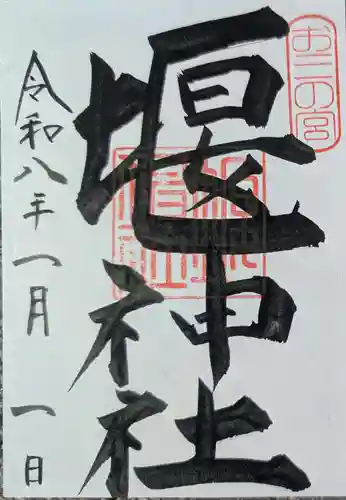 おこの宮
堰神社
令和八年一月一日